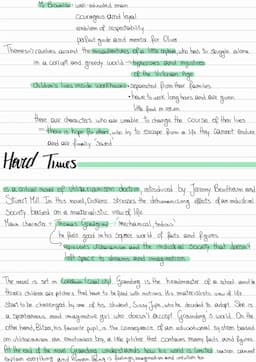 Mr Brownlow - well-educated man
courageous and loyal
emblem of respectability
perfect guide and mentor for Oliver
Themes: revolves around the misadventures of a little orphan, who has to struggle alone
in a corrupt and greedy world → hypocrisies and injustices
of the Victorian Age
Children's lives inside workhouses: • separated from their families
• have to work long hours and are given
little food in return
There are characters who are unable to change the course of they lives
→ there is hope for others, who try to escape from a life they cannot endure
and are finally "saved"
Hard Times
is a critical novel of utilitarianism doctrine, introduced by Jeremy Bentham and
Stuart Mill. In this novel, Dickens stresses the dehumanizing effects of an industrial
Society based on a materialistic view of life
Main character = Thomas Gradgrind - "mechanical, tedious"
he feels good in his square world of facts and figures
represents utilitarianism and the industrial society that doesn't
left space to dreams and imagination
The novel is set in Coketown (coal city). Gradgrind is the headmaster of a school and he
thinks children are pitchers that have to be filled with notions. His materialistic view of life
start to be challenged by one of his student, Sissy Jupe, who he decided to adopt. She is
a spontaneous and imaginative girl who doesn't accept Gradgrind's world. On the
other hand, Bitzer, his favorite pupil, is the consequence of an educational system based
on utilitarianism: an emotionless boy, a little pitcher that contains many facts and figures.
At the end of the novel Gradgrind understands that he world is limited
explain everything and